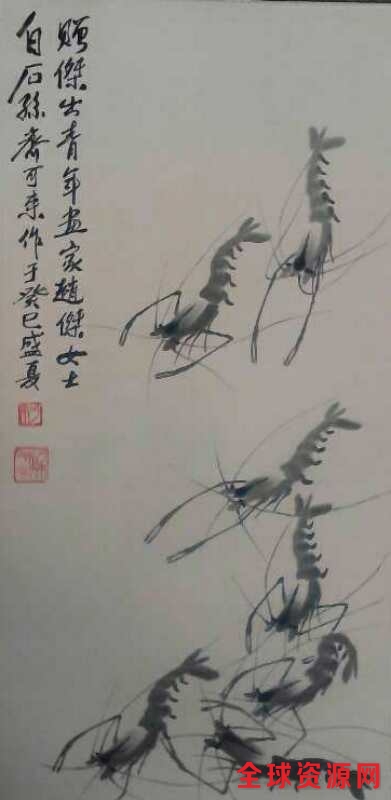 贈傑出青年画家趙傑女士
白石孫齊可来作于癸巳盛夏
全球资源网